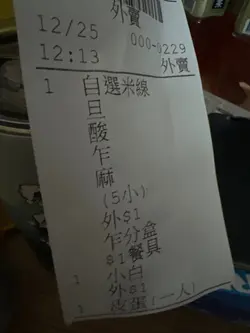 外賣
12/25
000-0229
12:13
外賣
1 自選米線
旦
酸
乍
麻
(5小)
外$1
乍分盒
$1餐具
1 小白
外$1
1 皮蛋(一人)